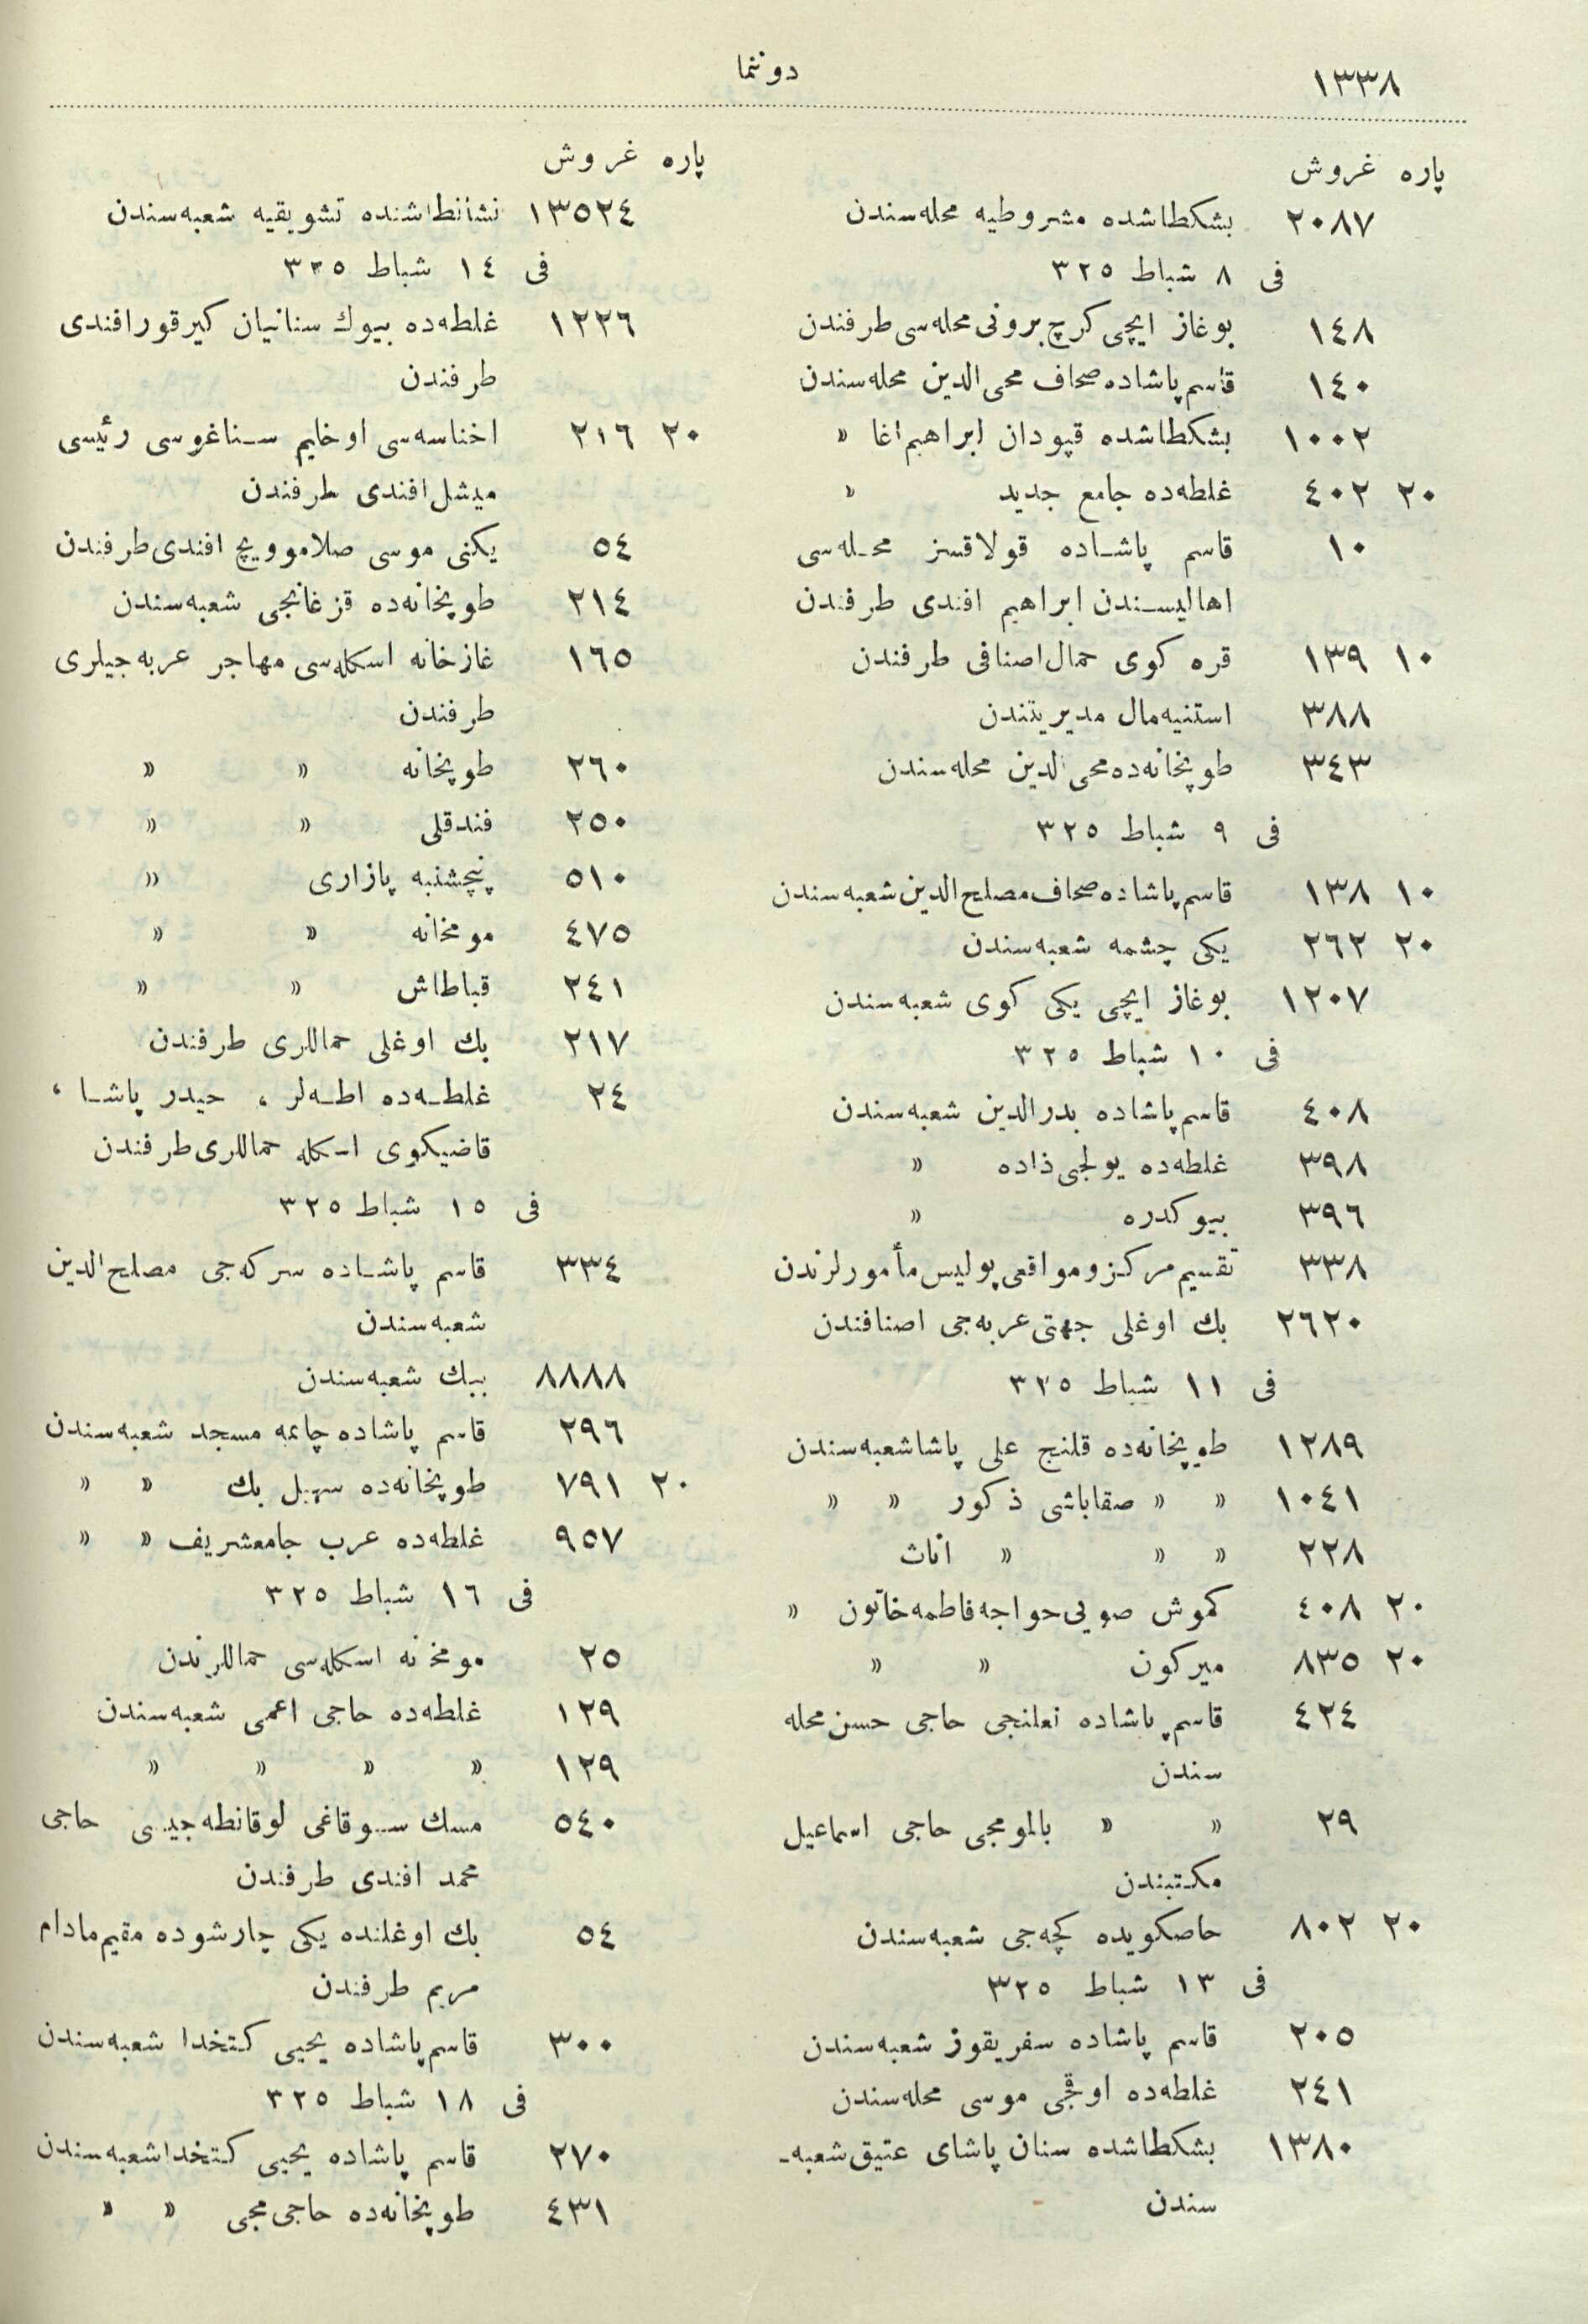 ١٣٣٨
دوننما
پاره غروش
٢٠٨٧ بشكطاشده مشروطيه محله‌سندن
فى ٨ شباط ٣٢٥
١٤٨ بوغاز ايچى كرچ برونى محله‌سى طرفندن
١٤٠ قاسم پاشاده صحاف محى الدين محله‌سندن
١٠٠٢ بشكطاشده قپودان ابراهيم اغا »
٢٠ ٤٠٢ غلطه‌ده جامع جديد »
١٠ قاسم پاشاده قولاقسز محله‌سى
اهاليسندن ابراهيم افندى طرفندن
١٠ ١٣٩ قره كوى حمال اصنافى طرفندن
٣٨٨ استنيه مال مديريتندن
٣٤٣ طوپخانه‌ده محى الدين محله‌سندن
فى ٩ شباط ٣٢٥
١٠ ١٣٨ قاسم پاشاده صحاف مصلح الدين شعبه‌سندن
٢٠ ٢٦٢ يكى چشمه شعبه‌سندن
١٢٠٧ بوغاز ايچى يكى كوى شعبه‌سندن
فى ١٠ شباط ٣٢٥
٤٠٨ قاسم پاشاده بدرالدين شعبه‌سندن
٣٩٨ غلطه‌ده يولجى ذاده »
٣٩٦ بيوكدره »
٣٣٨ تقسيم مركز و مواقعى پوليس مأمورلرندن
٢٦٢٠ بك اوغلى جهتى عربه‌جى اصنافندن
فى ١١ شباط ٣٢٥
١٢٨٩ طوپخانه‌ده قلنج على پاشا شعبه‌سندن
١٠٤١ » » صقاباشى ذكور » »
٢٢٨ » » » اناث
٢٠ ٤٠٨ كموش صويى حواجه فاطمه خاتون »
٢٠ ٨٣٥ ميركون » »
٤٢٤ قاسم پاشاده نعلنجى حاجى حسن محله
سندن
٢٩ » » بالمومجى حاجى اسماعيل
مكتبندن
٢٠ ٨٠٢ حاصكويده كچه‌جى شعبه‌سندن
فى ١٣ شباط ٣٢٥
٢٠٥ قاسم پاشاده سفريقوز شعبه‌سندن
٢٤١ غلطه‌ده اوقجى موسى محله‌سندن
١٣٨٠ بشكطاشده سنان پاشاى عتيق شعبه-
سندن
پاره غروش
١٣٥٢٤ نشانطاشنده تشويقيه شعبه‌سندن
فى ١٤ شباط ٣٢٥
١٢٢٦ غلطه‌ده بيوك سنانيان كيرقور افندى
طرفندن
٢٠ ٢١٦ اخناسه‌سى اوخايم سناغوسى رئيسى
ميشل افندى طرفندن
٥٤ يكنى موسى صلاموويچ افندى طرفندن
٢١٤ طوپخانه‌ده قزغانجى شعبه‌سندن
١٦٥ غازخانه اسكله‌سى مهاجر عربه جيلرى
طرفندن
٢٦٠ طوپخانه » »
٢٥٠ فندقلى » »
٥١٠ پنچشنبه پازارى »
٤٧٥ مومخانه » »
٢٤١ قباطاش » »
٢١٧ بك اوغلى حماللرى طرفندن
٢٤ غلطه‌ده اطه‌لر ، حيدر پاشا ،
قاضيكوى اسكله حماللرى طرفندن
فى ١٥ شباط ٣٢٥
٣٣٤ قاسم پاشاده سركه‌جى مصلح الدين
شعبه‌سندن
٨٨٨٨ ببك شعبه‌سندن
٢٩٦ قاسم پاشاده چاتمه مسجد شعبه‌سندن
٢٠ ٧٩١ طوپخانه‌ده سهيل بك » »
٩٥٧ غلطه‌ده عرب جامعشريف » »
فى ١٦ شباط ٣٢٥
٢٥ مومخانه اسكله‌سى حماللرندن
١٢٩ غلطه‌ده حاجى اعمى شعبه‌سندن
١٢٩ » » » »
٥٤٠ مسك سوقاغى لوقانطه‌جيسى حاجى
محمد افندى طرفندن
٥٤ بك اوغلنده يكى چارشوده مقيم مادام
مريم طرفندن
٣٠٠ قاسم پاشاده يحيى كتخدا شعبه‌سندن
فى ١٨ شباط ٣٢٥
٢٧٠ قاسم پاشاده يحيى كتخدا شعبه‌سندن
٤٣١ طوپخانه‌ده حاجى مجى » »